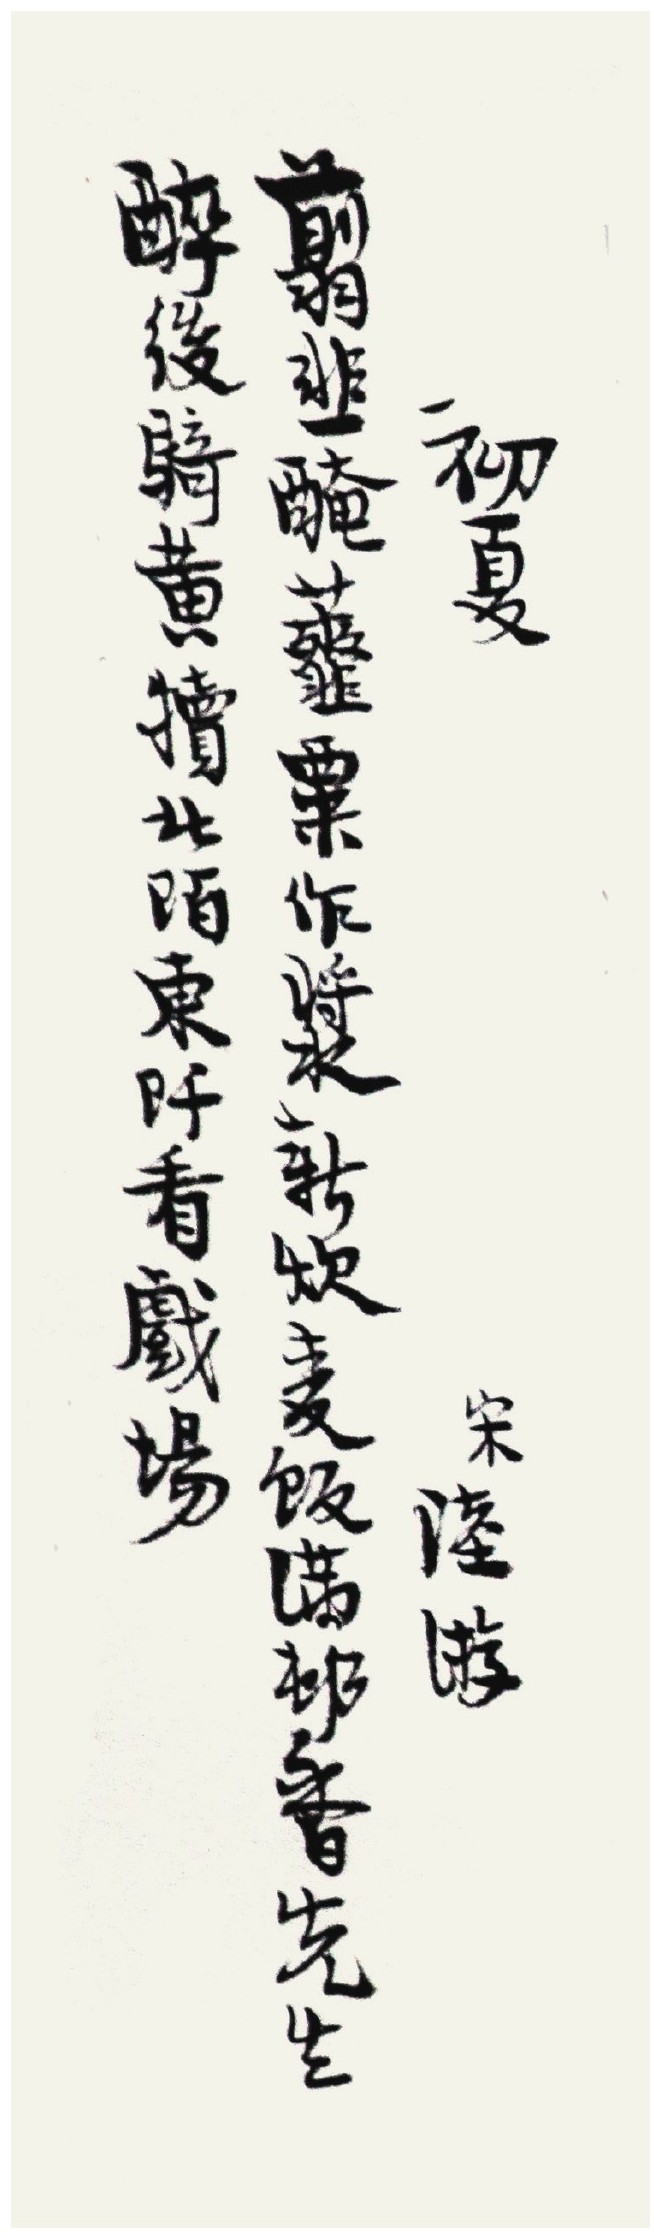 初夏
宋 陸游
翦韭醃虀粟作漿新炊麦飯满村香先生
醉後騎黄犢北陌東阡看戲場